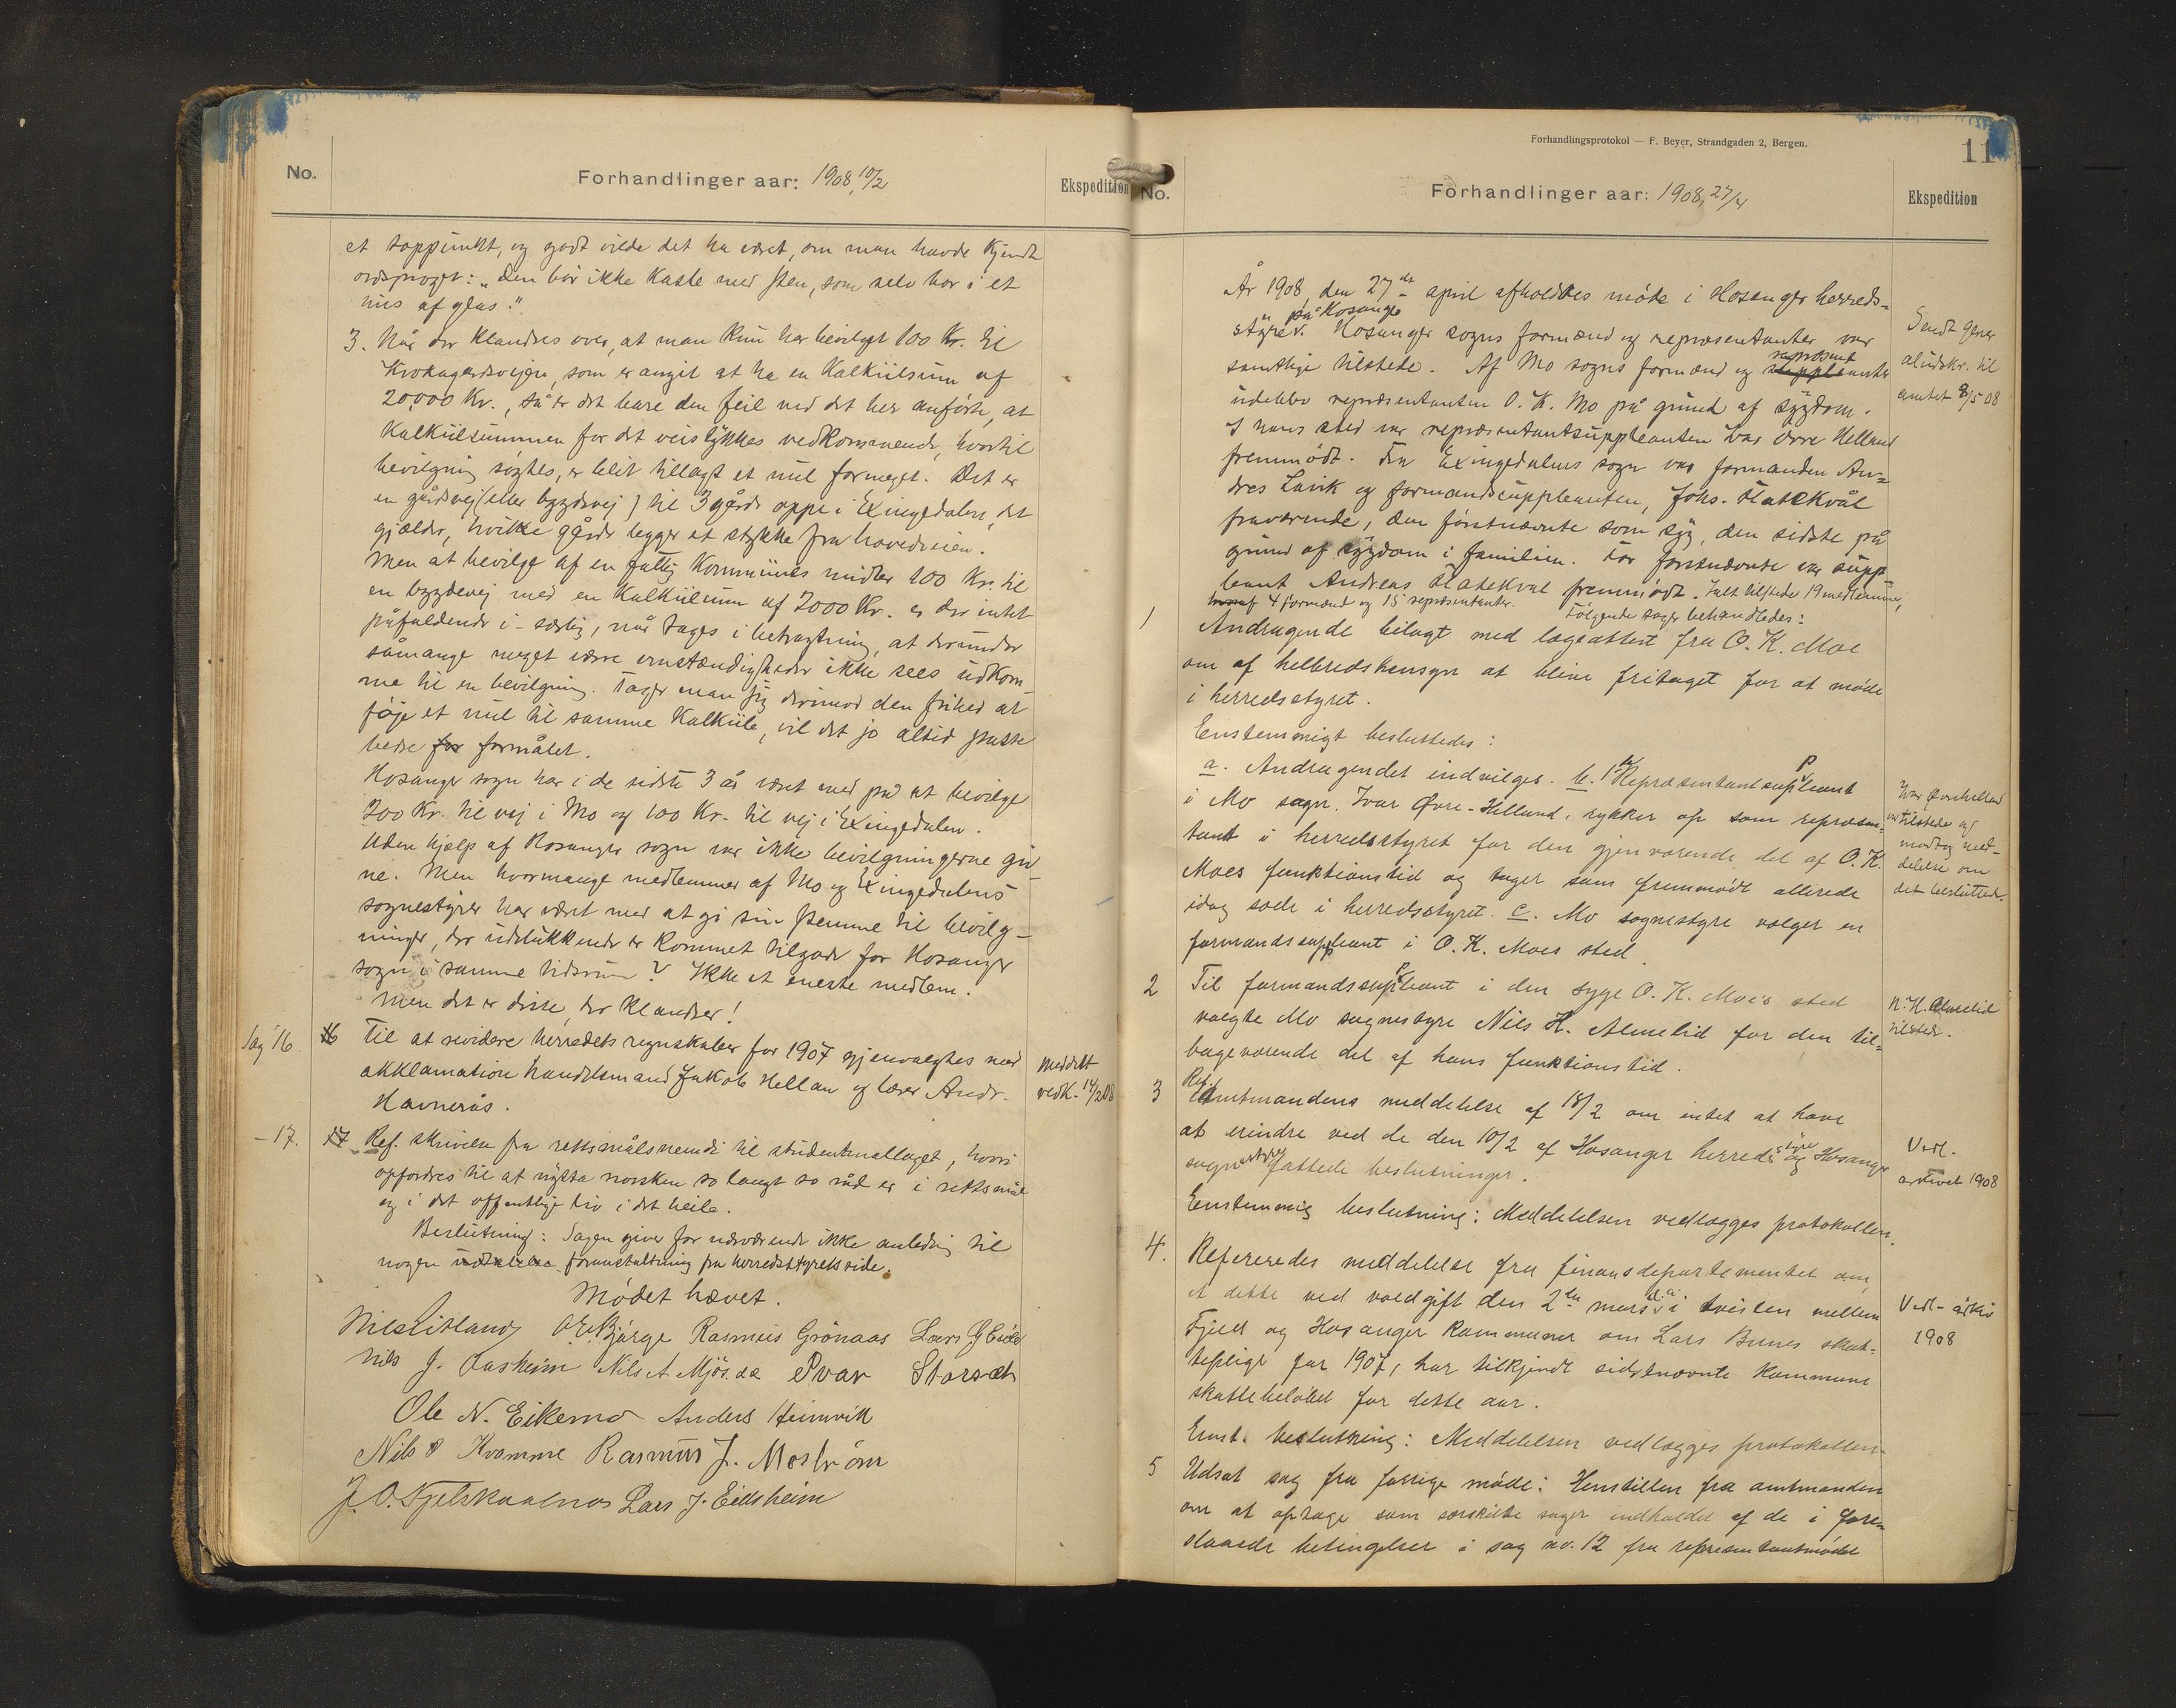 No.
Forhandlinger aar: 1908, 10/2
Ekspedition
et toppunkt, og godt vilde det ha været, om man havde kjendt
ordsproget: "Den bør ikke kaste med sten, som selv bor i et
hus af glas."
3. Når der klandres over, at man kun har bevilget 100 Kr. til
Krokagardsvejen, som er angit at ha en Kalkülsum af
20,000 Kr., så er det bare den feil ved det her anførte, at
Kalkülsummen for det veistykkes vedkommende, hvortil
bevilgning søgtes, er blit tillagt et nul formeget. Det er
en gårdsvej (eller bygdevej) til 3 gårde oppe i Exingedalen, det
gjælder, hvilke gårde ligger et stykke fra hovedveien.
Men at bevilge af en fattig Kommunes midler 100 Kr. til
en bygdevej med en Kalkülsum af 2000 Kr. er der intet
påfaldende i – særlig, når tages i betragtning, at derunder
såmange meget værre omstændigheder ikke sees udkom-
me til en bevilgning. Tager man sig derimod den frihed at
føje et nul til samme Kalküle, vil det jo altid passe
bedre for formålet.
Hosanger sogn har i de sidste 3 år været med på at bevilge
200 Kr. til vej i Mo og 100 Kr. til vej i Exingedalen.
Uden hjælp af Hosanger sogn var ikke bevilgningerne gå-
ne. Men hvormange medlemmer af Mo og Exingedalens
sognestyrer har været med at gi sin stemme til bevilg-
ninger, der udelukkende er kommet tilgode for Hosanger
sogn i samme tidsrum? Ikke et eneste medlem.
Men det er disse, der klandrer!
Sag 16 16 Til at revidere herredets regnskaber for 1907 gjenvalgtes med
akklamation handelsmand Jakob Helland og lærer Andr.
Havnerås.
Meddelt
vedk. 14/2 08
– 17. 17 Ref. skrivelse fra rettsmålsnemdi til studentmallaget, hvori
opfordres til at nytta norsken so langt so råd er i rettsmål
og i det offentlige liv i det heile.
Beslutning: Sagen giver for nærværende ikke anledning til
nogen foranstaltning fra herredsstyrets side.
Mødet hævet.
Nils Litland O E Bjørge Rasmus Grønaas Lars G Eide
Nils J. Aasheim Nils A Mjøs. da Ivar Storset
Ole N. Eikemo Anders Heimvik
Nils O Kvamme Rasmus J. Mostrøm
J. O. Fjelskaalnes Lars J. Eidsheim
Forhandlingsprotokol — F. Beyer, Strandgaden 2, Bergen.
11
No.
Forhandlinger aar: 1908, 27/4
Ekspedition
År 1908, den 27de april afholdtes møde i Hosanger herreds-
på Hosanger
styre. Hosanger sogns formænd og repræsentanter var
samtlige tilstede. Af Mo sogns formænd og repræsentanter
udeblev repræsentanten O. K. Mo på grund af sygdom.
I hans sted var repræsentantsuppleanten Ivar Øvre Helland
fremmødt. Fra Exingedalens sogn var formanden An-
dres Lavik og formandssuppleanten, Johs. Flatekvål
fraværende, den førstnævnte som syg, den sidste på
grund af sygdom i familien. For førstnævnte var supp-
leant Andreas Flatekval fremmødt. Ialt tilstede 19 medlemmer,
hvoraf 4 formænd og 15 repræsentanter. Følgende sager behandledes:
Sendt gener
aludskr. til
amtet 8/5 08
1 Andragende bilagt med lægeattest fra O. K. Moe
om af helbredshensyn at blive fritaget for at møde
i herredsstyret.
Enstemmigt besluttedes:
a. Andragendet indvilges. b. 1ste Repræsentantsuppleant
i Mo sogn, Ivar Øvre-Helland, rykker op som repræsen-
tant i herredsstyret for den gjenværende del af O. K.
Moes funktionstid og tager som fremmødt allerede
idag sæde i herredsstyret. c. Mo sognestyre vælger en
formandssuppleant i O. K. Moes sted.
Ivar Øvrehelland
var tilstede og
modtog med-
delelse om
det besluttede.
2 Til formandssuppleant i den syge O. K. Moe's sted
valgte Mo sognestyre Nils H. Almelid for den til-
bageværende del af hans funktionstid.
N. H. Almelid
tilstede.
3 Ref. Amtmandens meddelelse af 18/2 om intet at have
at erindre ved de den 10/2 af Hosanger herredsstyre og Hosanger
sognestyre fattede beslutninger.
Enstemmig beslutning: Meddelelsen vedlægges protokollen.
Vedl.
arkivet 1908
4. Refereredes meddelelse fra finansdepartementet om,
at dette ved voldgift den 2den mars d.a. i tvisten mellem
Fjeld og Hosanger kommuner om Lars Bunes skat-
tepligt for 1907, har tilkjendt sidstnævnte kommune
skattebeløbet for dette aar.
Enst. beslutning: Meddelelsen vedlægges protokollen.
Vedl. arkiv
1908
5 Udsat sag fra forrige møde: Henstillen fra amtmanden
om at optage som særskilte sager indholdet af de i fore-
slaaede betingelser i sag no. 12 fra repræsentantmødet